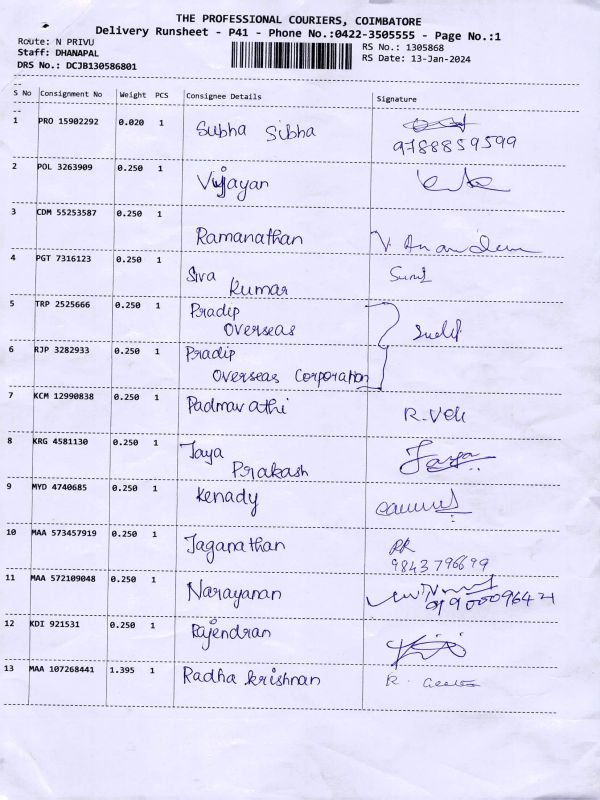 THE PROFESSIONAL COURIERS, COIMBATORE
Delivery Runsheet - P41 - Phone No.:0422-3505555 - Page No.:1
Route: N PRIVU
RS No.: 1305868
Staff: DHANAPAL
RS Date: 13-Jan-2024
DRS No.: DCJB130586801
S No Consignment No Weight PCS Consignee Details Signature
1 PRO 15902292 0.020 1 Subha Sibha
9788859599
2 POL 3263909 0.250 1 Vijayan
3 CDM 55253587 0.250 1 Ramanathan
4 PGT 7316123 0.250 1 Siva
Kumar
5 TRP 2525666 0.250 1 Pradip
Overseas
6 RJP 3282933 0.250 1 Pradip
Overseas Corporation
7 KCM 12990838 0.250 1 Padmavathi R. Veli
8 KRG 4581130 0.250 1 Jaya
Prakash
9 MYD 4740685 0.250 1 Kenady
10 MAA 573457919 0.250 1 Jaganathan
9843796699
11 MAA 572109048 0.250 1 Narayanan
12 KDI 921531 0.250 1 Rajendran
13 MAA 107268441 1.395 1 Radha krishnan R.